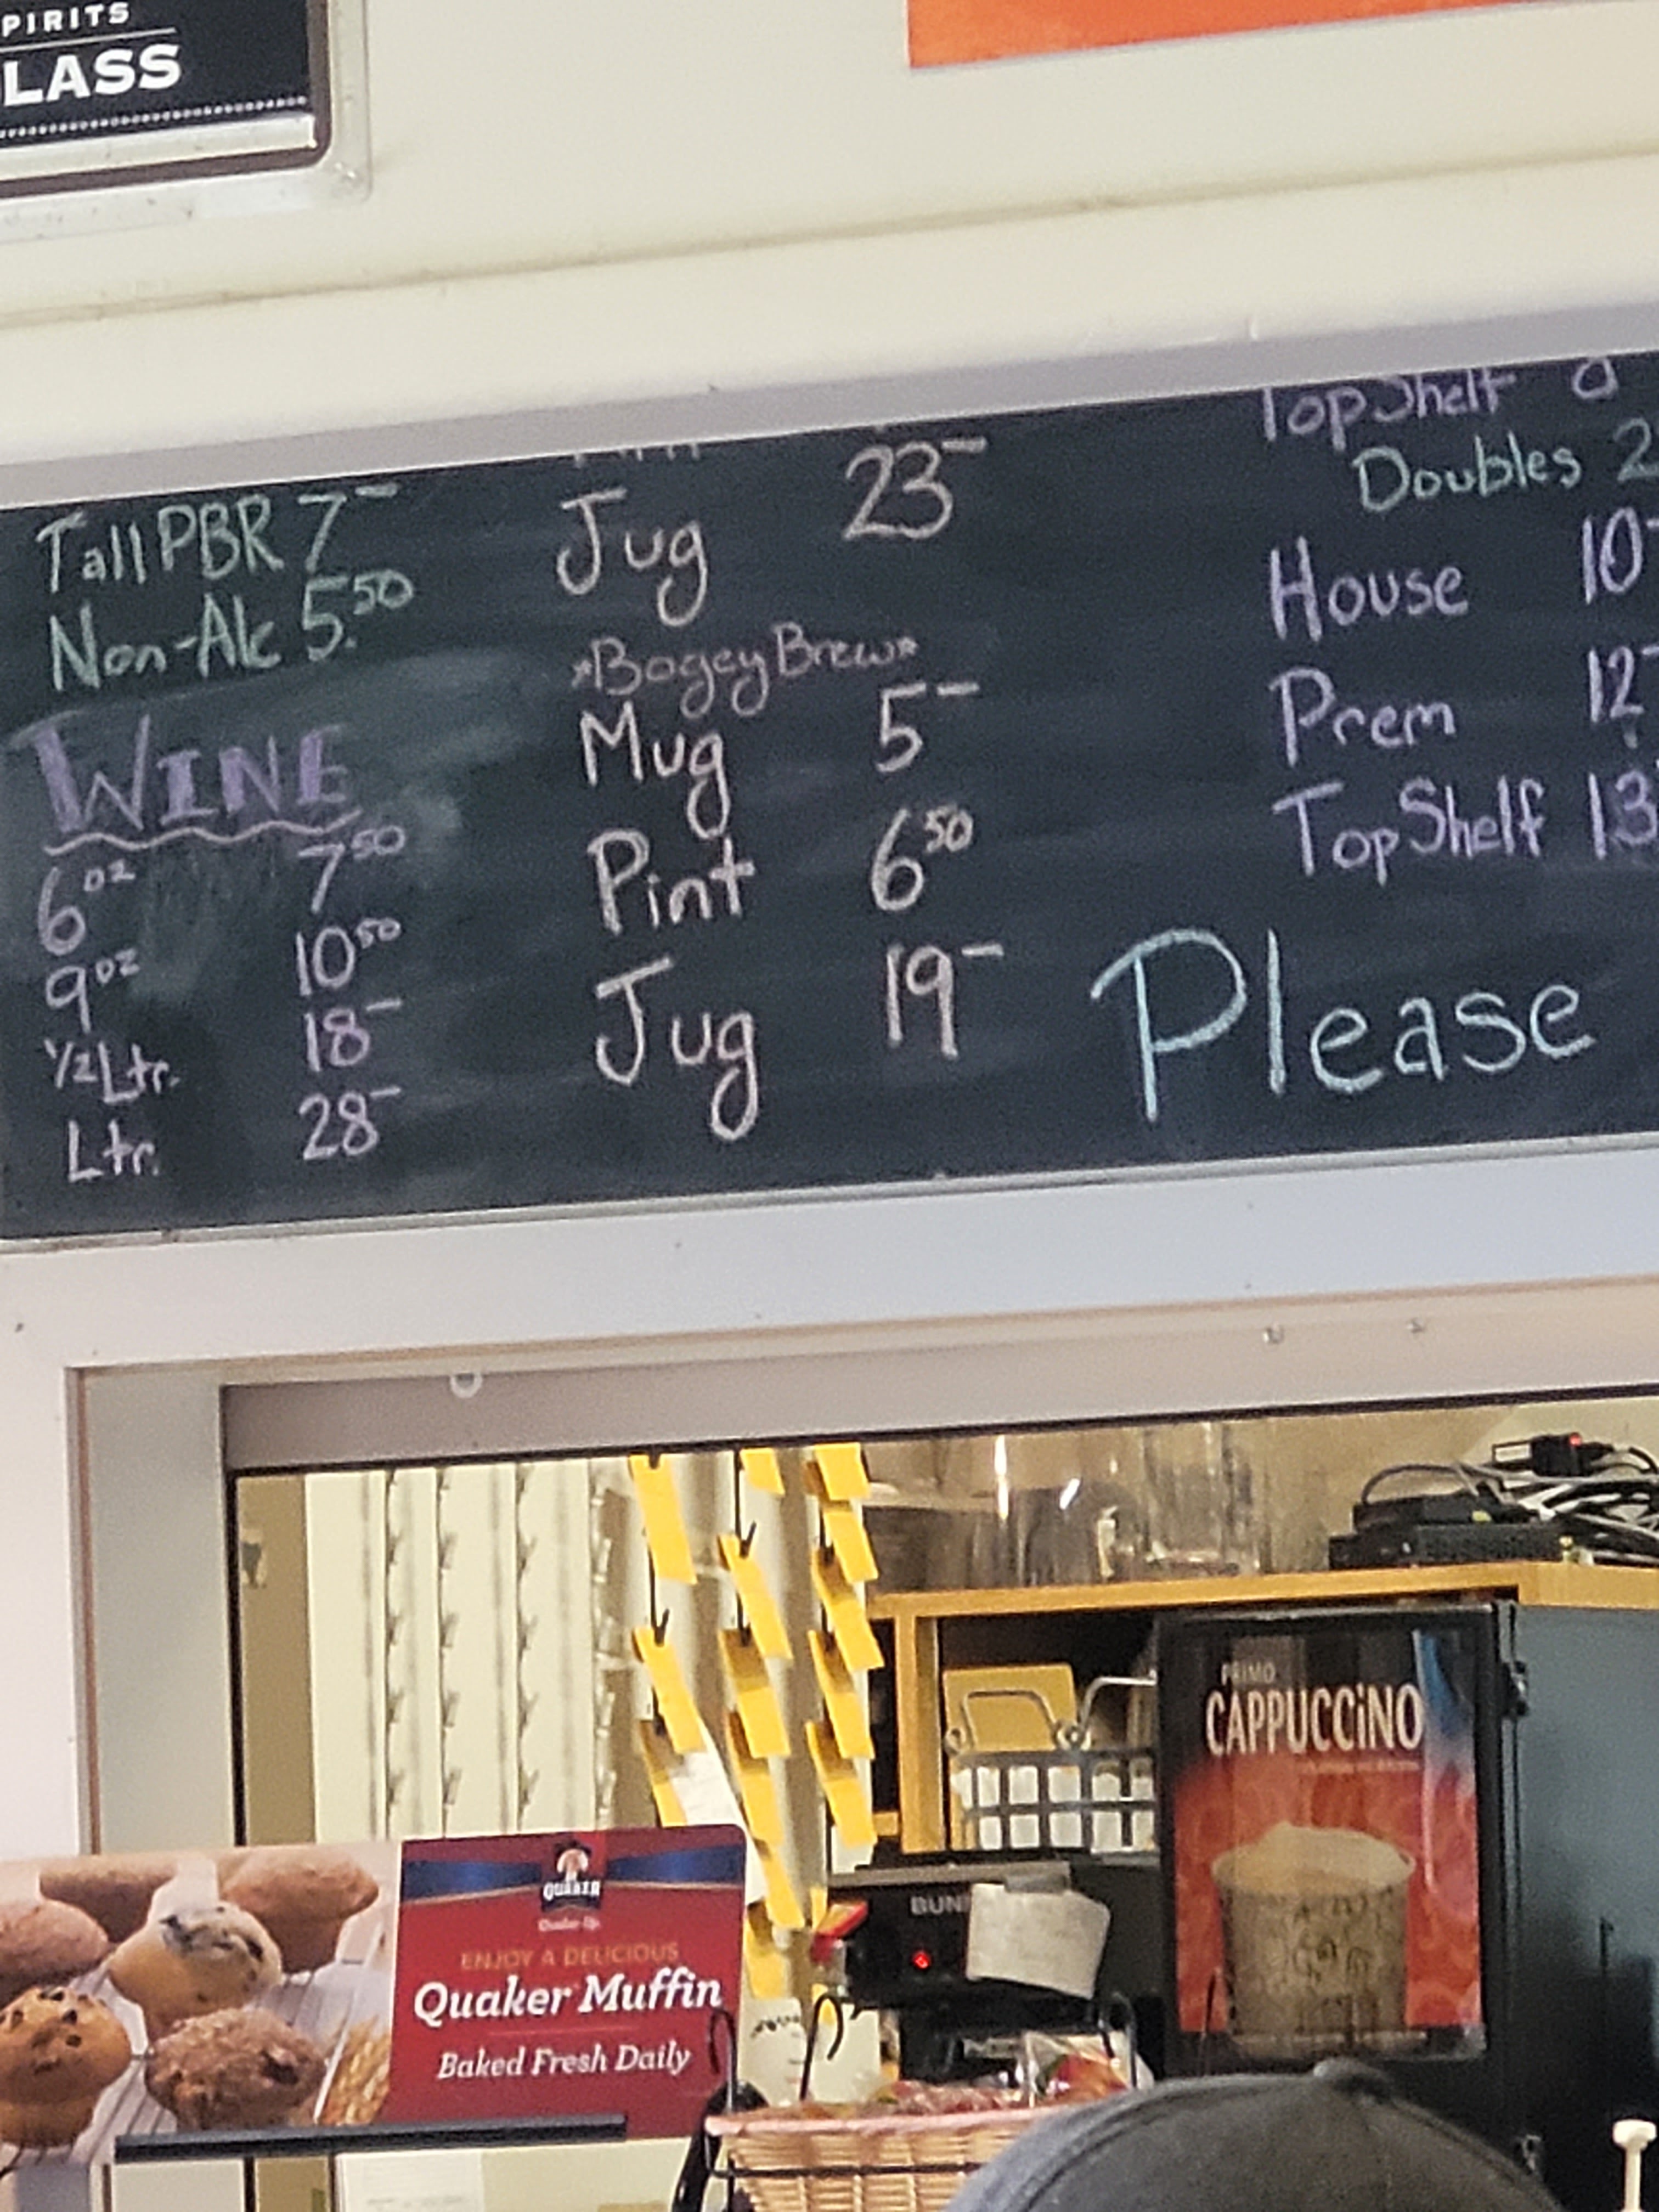 PIRITS
LASS
Tall PBR 7-
Non-Alc 5.50
WINE
6oz 7.50
9oz 10.50
1/2 Ltr. 18-
Ltr. 28-
Jug 23-
*Bogey Brew*
Mug 5-
Pint 6.50
Jug 19-
Top Shelf
Doubles 2
House 10-
Prem 12-
Top Shelf 13
Please
PRIMO
CAPPUCCiNO
QUAKER
ENJOY A DELICIOUS
Quaker Muffin
Baked Fresh Daily
BUN